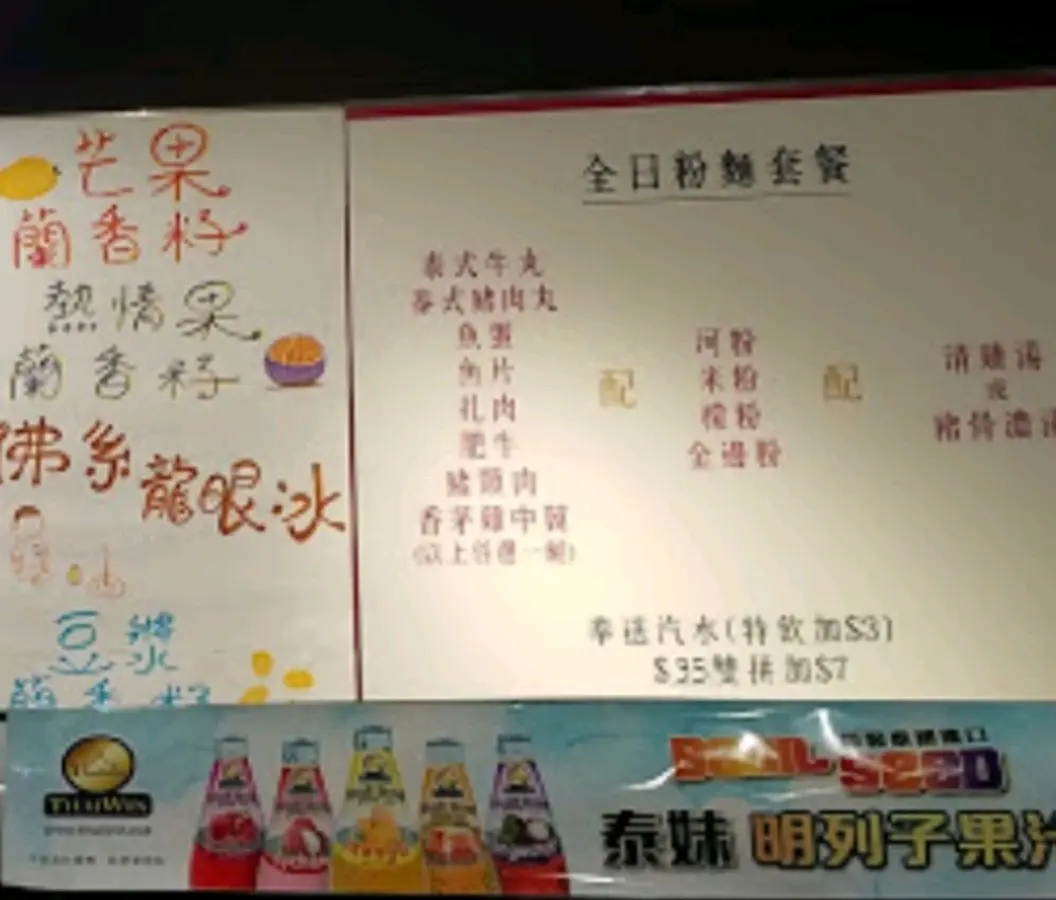 芒果
蘭香籽
熱情果
蘭香籽
佛系
龍眼冰
豆漿
蘭香籽
全日粉麵套餐
泰式牛丸
泰式豬肉丸
魚蛋
魚片
扎肉
肥牛
豬頸肉
香茅雞中翼
(以上任選一款)
配
河粉
米粉
檬粉
金邊粉
配
清雞湯
或
豬骨濃湯
奉送汽水(特飲加$3)
$35雙拼加$7
BASIL
SEED
泰妹 明列子果汁